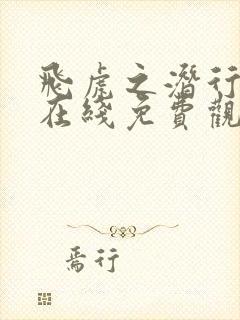 飛虎之潛行
在綫免費觀
焉行